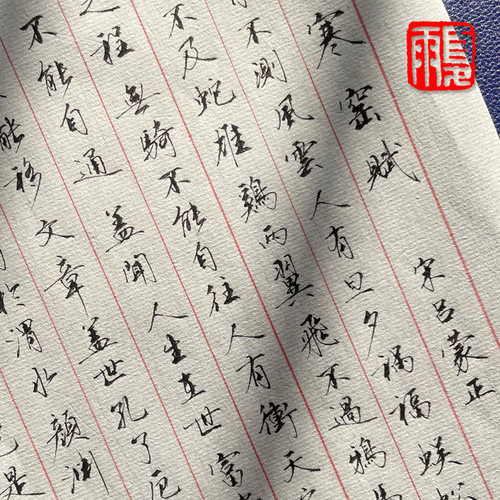 寒窑賦
宋呂蒙正
不測風雲人有旦夕禍福蜈
不及蛇雄雞兩翼飛不過鴉
程無騎不能自往人有衝天
不能自通蓋聞人生在世富
能移文章蓋世孔子厄
於渭水顏淵